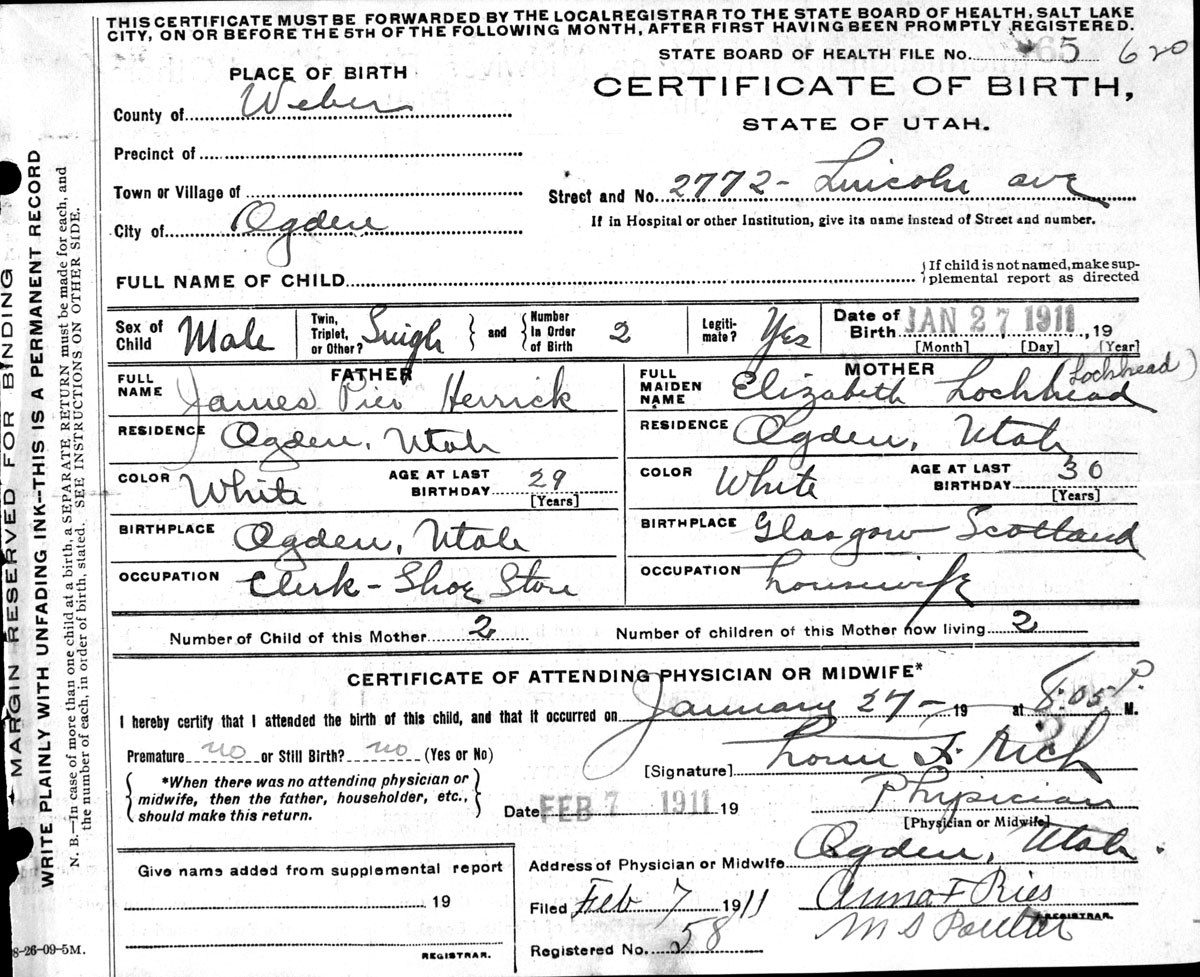 THIS CERTIFICATE MUST BE FORWARDED BY THE LOCAL REGISTRAR TO THE STATE BOARD OF HEALTH, SALT LAKE
CITY, ON OR BEFORE THE 5TH OF THE FOLLOWING MONTH, AFTER FIRST HAVING BEEN PROMPTLY REGISTERED.
STATE BOARD OF HEALTH FILE No. 65 620
PLACE OF BIRTH
CERTIFICATE OF BIRTH,
County of Weber
STATE OF UTAH.
Precinct of
Town or Village of
Street and No. 2772- Lincoln ave
City of Ogden
If in Hospital or other Institution, give its name instead of Street and number.
FULL NAME OF CHILD
{If child is not named, make sup-
plemental report as directed
Sex of Child Male
Twin, Triplet, or Other? Singh } and { Number In Order of Birth 2
Legiti-mate? Yes
Date of Birth JAN 27 1911, 19
[Month] [Day] [Year]
FATHER
FULL NAME James Pier Herrick
RESIDENCE Ogden, Utah
COLOR White AGE AT LAST BIRTHDAY 29 [Years]
BIRTHPLACE Ogden, Utah
OCCUPATION Clerk - Shoe Store
MOTHER
FULL MAIDEN NAME Elizabeth Lochhead Lockhead)
RESIDENCE Ogden, Utah
COLOR White AGE AT LAST BIRTHDAY 30 [Years]
BIRTHPLACE Glasgow Scotland
OCCUPATION housewife
Number of Child of this Mother 2 Number of children of this Mother now living 2
CERTIFICATE OF ATTENDING PHYSICIAN OR MIDWIFE*
I hereby certify that I attended the birth of this child, and that it occurred on January 27- 19 at 8:05 P. M.
Premature no or Still Birth? no (Yes or No)
{*When there was no attending physician or
midwife, then the father, householder, etc.,
should make this return.}
[Signature] Rich
Physician
[Physician or Midwife]
Date FEB 7 1911 19
Address of Physician or Midwife Ogden, Utah.
Give name added from supplemental report
19
REGISTRAR.
Filed Feb 7 1911 Anna F Ries
REGISTRAR.
M S
Registered No. 58
8-26-09-5M.
MARGIN RESERVED FOR BINDING
WRITE PLAINLY WITH UNFADING INK--THIS IS A PERMANENT RECORD
N. B.—In case of more than one child at a birth, a SEPARATE RETURN must be made for each, and
the number of each, in order of birth, stated. SEE INSTRUCTION ON OTHER SIDE.